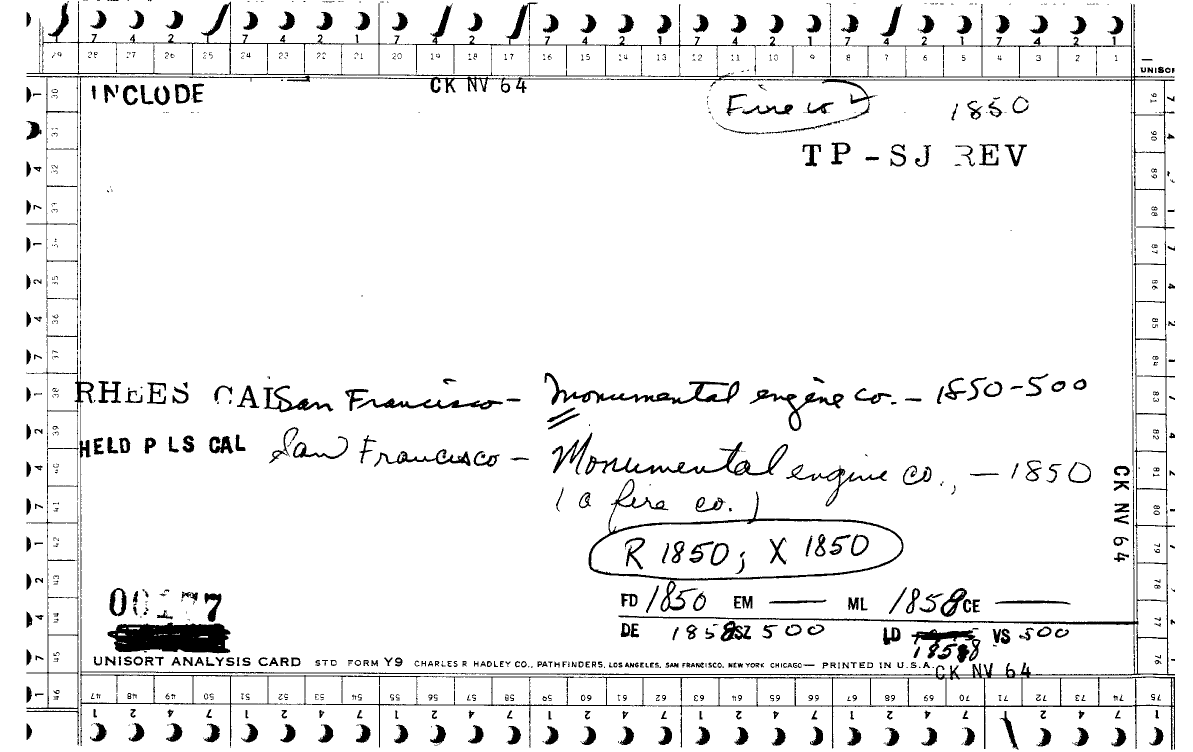 7 4 2 1 7 4 2 1 7 4 2 1 7 4 2 1 7 4 2 1 7 4 2 1 7 4 2 1
29 28 27 26 25 24 23 22 21 20 19 18 17 16 15 14 13 12 11 10 9 8 7 6 5 4 3 2 1
UNISOR
INCLUDE CK NV 64 Fire co 1850
TP-SJ REV
RHEES CAL San Francisco - Monumental engine co. - 1850-500
HELD P LS CAL San Francisco - Monumental engine co., - 1850
(a fire co.)
CK NV 64
R 1850; X 1850
00177
FD 1850 EM — ML 1858 CE —
DE 1858 SZ 500 LD 1858 VS 500
UNISORT ANALYSIS CARD STD FORM Y9 CHARLES R HADLEY CO., PATHFINDERS, LOS ANGELES, SAN FRANCISCO, NEW YORK CHICAGO — PRINTED IN U.S.A.
CK NV 64
46 47 48 49 50 51 52 53 54 55 56 57 58 59 60 61 62 63 64 65 66 67 68 69 70 71 72 73 74 75
1 2 4 7 1 2 4 7 1 2 4 7 1 2 4 7 1 2 4 7 1 2 4 7 1 2 4 7 1